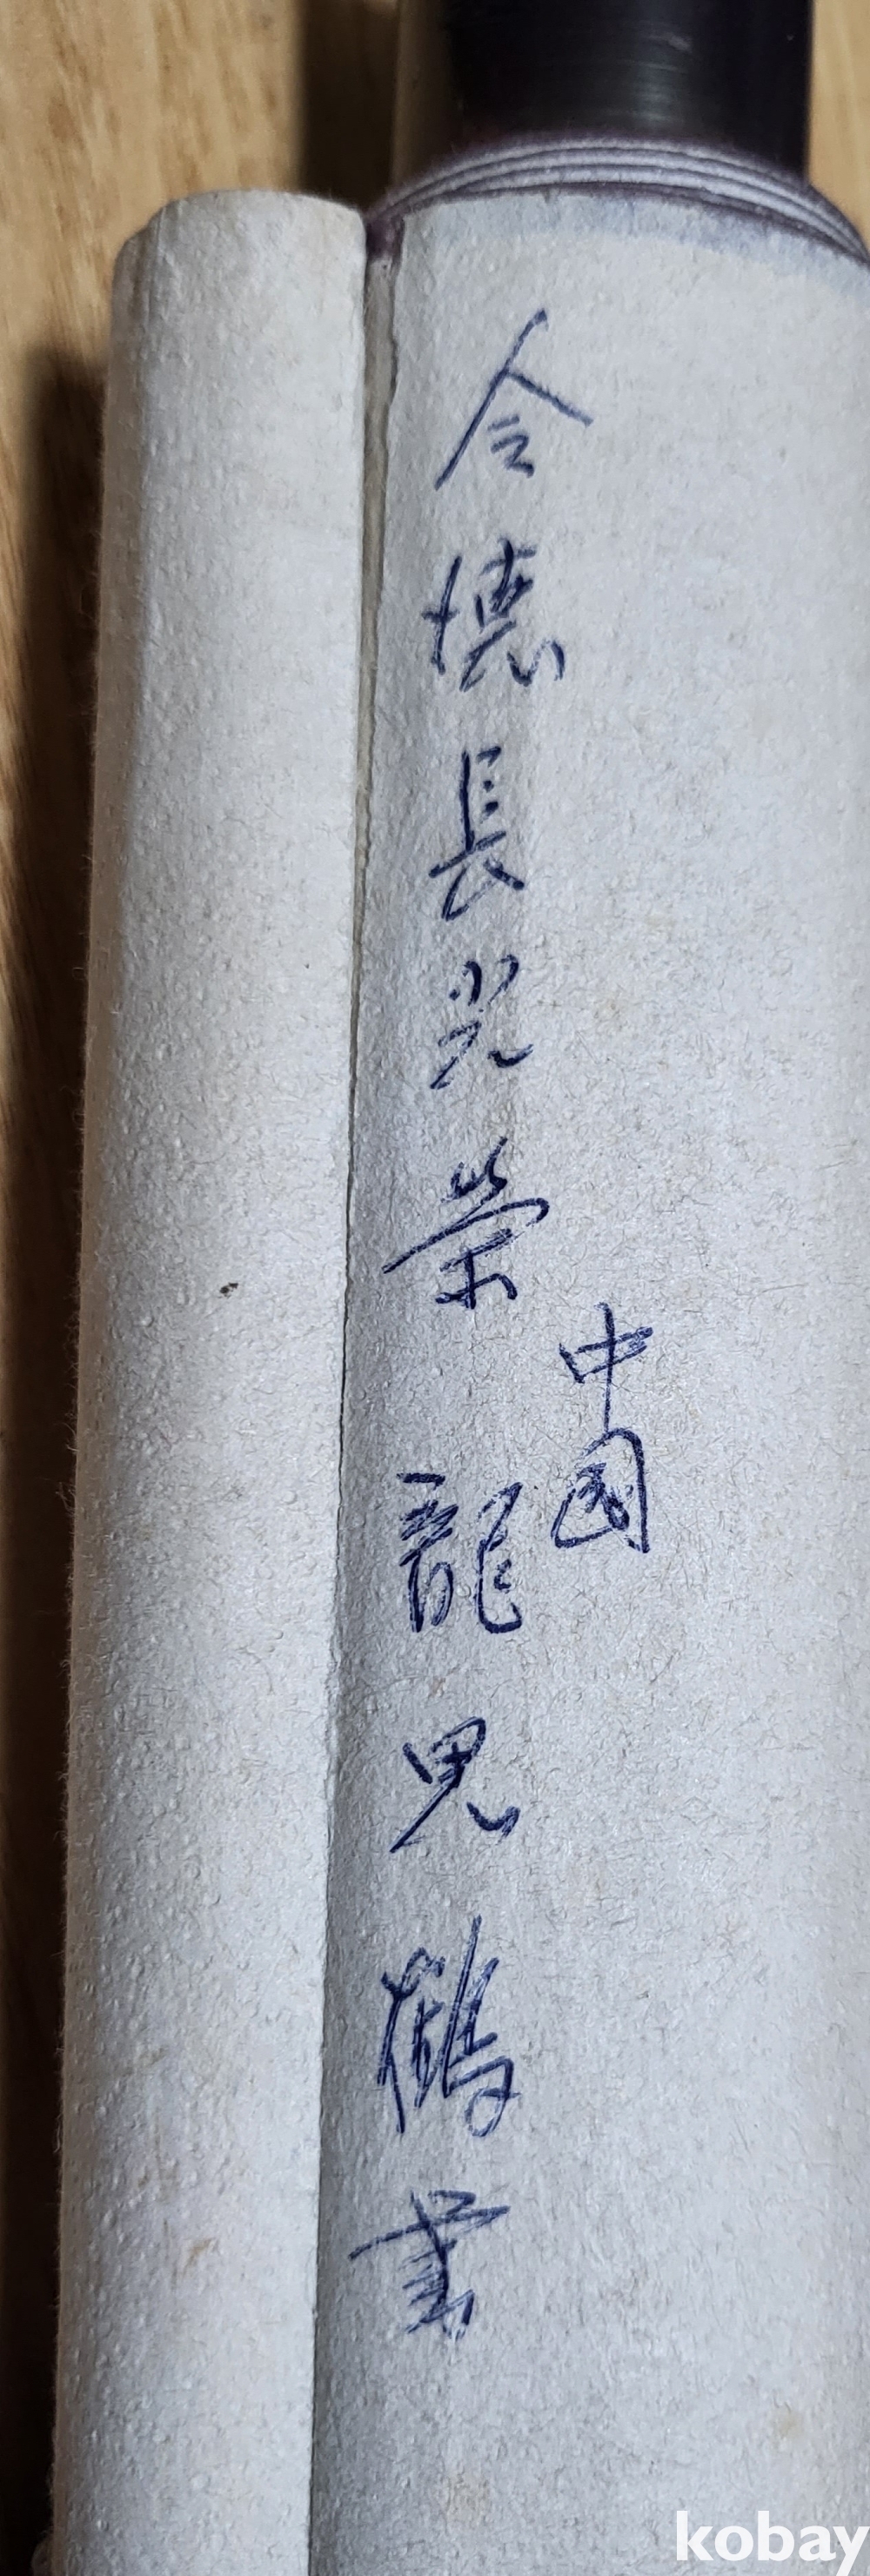 令德長光榮
中國
龍思鶴書
kobay